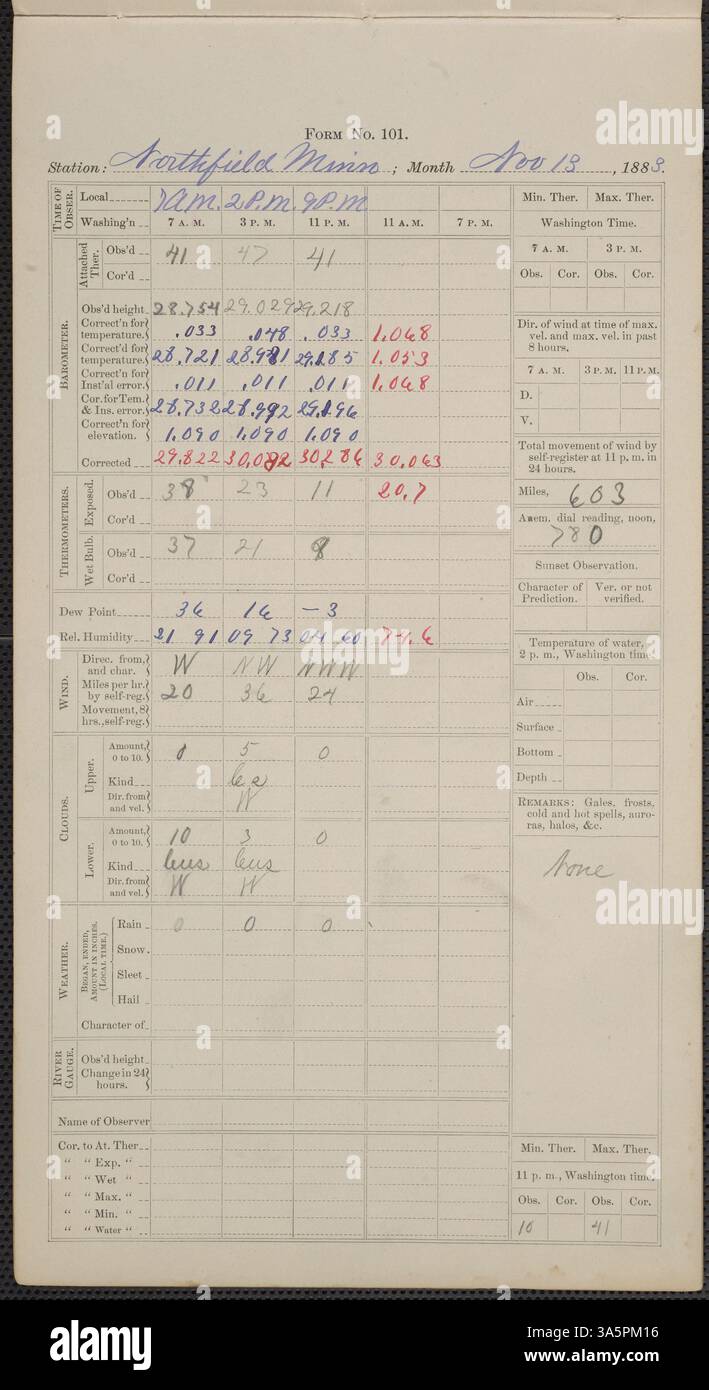 FORM No. 101.
Station: Northfield Minn ; Month Nov 13 , 1883.
TIME OF OBSER.
Local 7 A.M. 2 P.M. 9 P.M
Washing'n 7 A. M. 3 P. M. 11 P. M. 11 A. M. 7 P. M.
Attached Ther.
Obs'd 41 47 41
Cor'd
BAROMETER.
Obs'd height 28.754 29.029 29.218
Correct'n for temperature. .033 .048 .033 1.068
Correct'd for temperature. 28.721 28.981 29.185 1.053
Correct'n for Inst'al error. .011 .011 .011 1.068
Cor. for Tem. & Ins. error. 28.732 28.992 29.196
Correct'n for elevation. 1.090 1.090 1.090
Corrected 29.822 30.082 30.286 30.063
THERMOMETERS.
Exposed.
Obs'd 38 23 11 20.7
Cor'd
Wet Bulb.
Obs'd 37 21 9
Cor'd
Dew Point 36 16 -3
Rel. Humidity 21 91 09 73 04 60 74.6
WIND.
Direc. from, and char. W NW NWW
Miles per hr. by self-reg. 20 36 24
Movement, 8 hrs., self-reg.
CLOUDS.
Upper.
Amount, 0 to 10. 0 5 0
Kind
Dir. from and vel. W
Lower.
Amount, 0 to 10. 10 3 0
Kind cus cus
Dir. from and vel. W W
WEATHER.
BEGAN, ENDED, AMOUNT IN INCHES. (LOCAL TIME.)
Rain 0 0 0
Snow.
Sleet
Hail
Character of
RIVER GAUGE.
Obs'd height
Change in 24 hours.
Name of Observer
Cor. to At. Ther
" " Exp. "
" " Wet "
" " Max. "
" " Min. "
" " Water "
Min. Ther. Max. Ther.
Washington Time.
7 A. M. 3 P. M.
Obs. Cor. Obs. Cor.
Dir. of wind at time of max. vel. and max. vel. in past 8 hours.
7 A. M. 3 P.M. 11 P.M.
D.
V.
Total movement of wind by self-register at 11 p. m. in 24 hours.
Miles, 603
Anem. dial reading, noon,
780
Sunset Observation.
Character of Prediction. Ver. or not verified.
Temperature of water, 2 p. m., Washington time.
Obs. Cor.
Air
Surface
Bottom
Depth
REMARKS: Gales, frosts, cold and hot spells, auroras, halos, &c.
None
Min. Ther. Max. Ther.
11 p. m., Washington time.
Obs. Cor. Obs. Cor.
10 41
alamy
Image ID: 3A5PM16
www.alamy.com